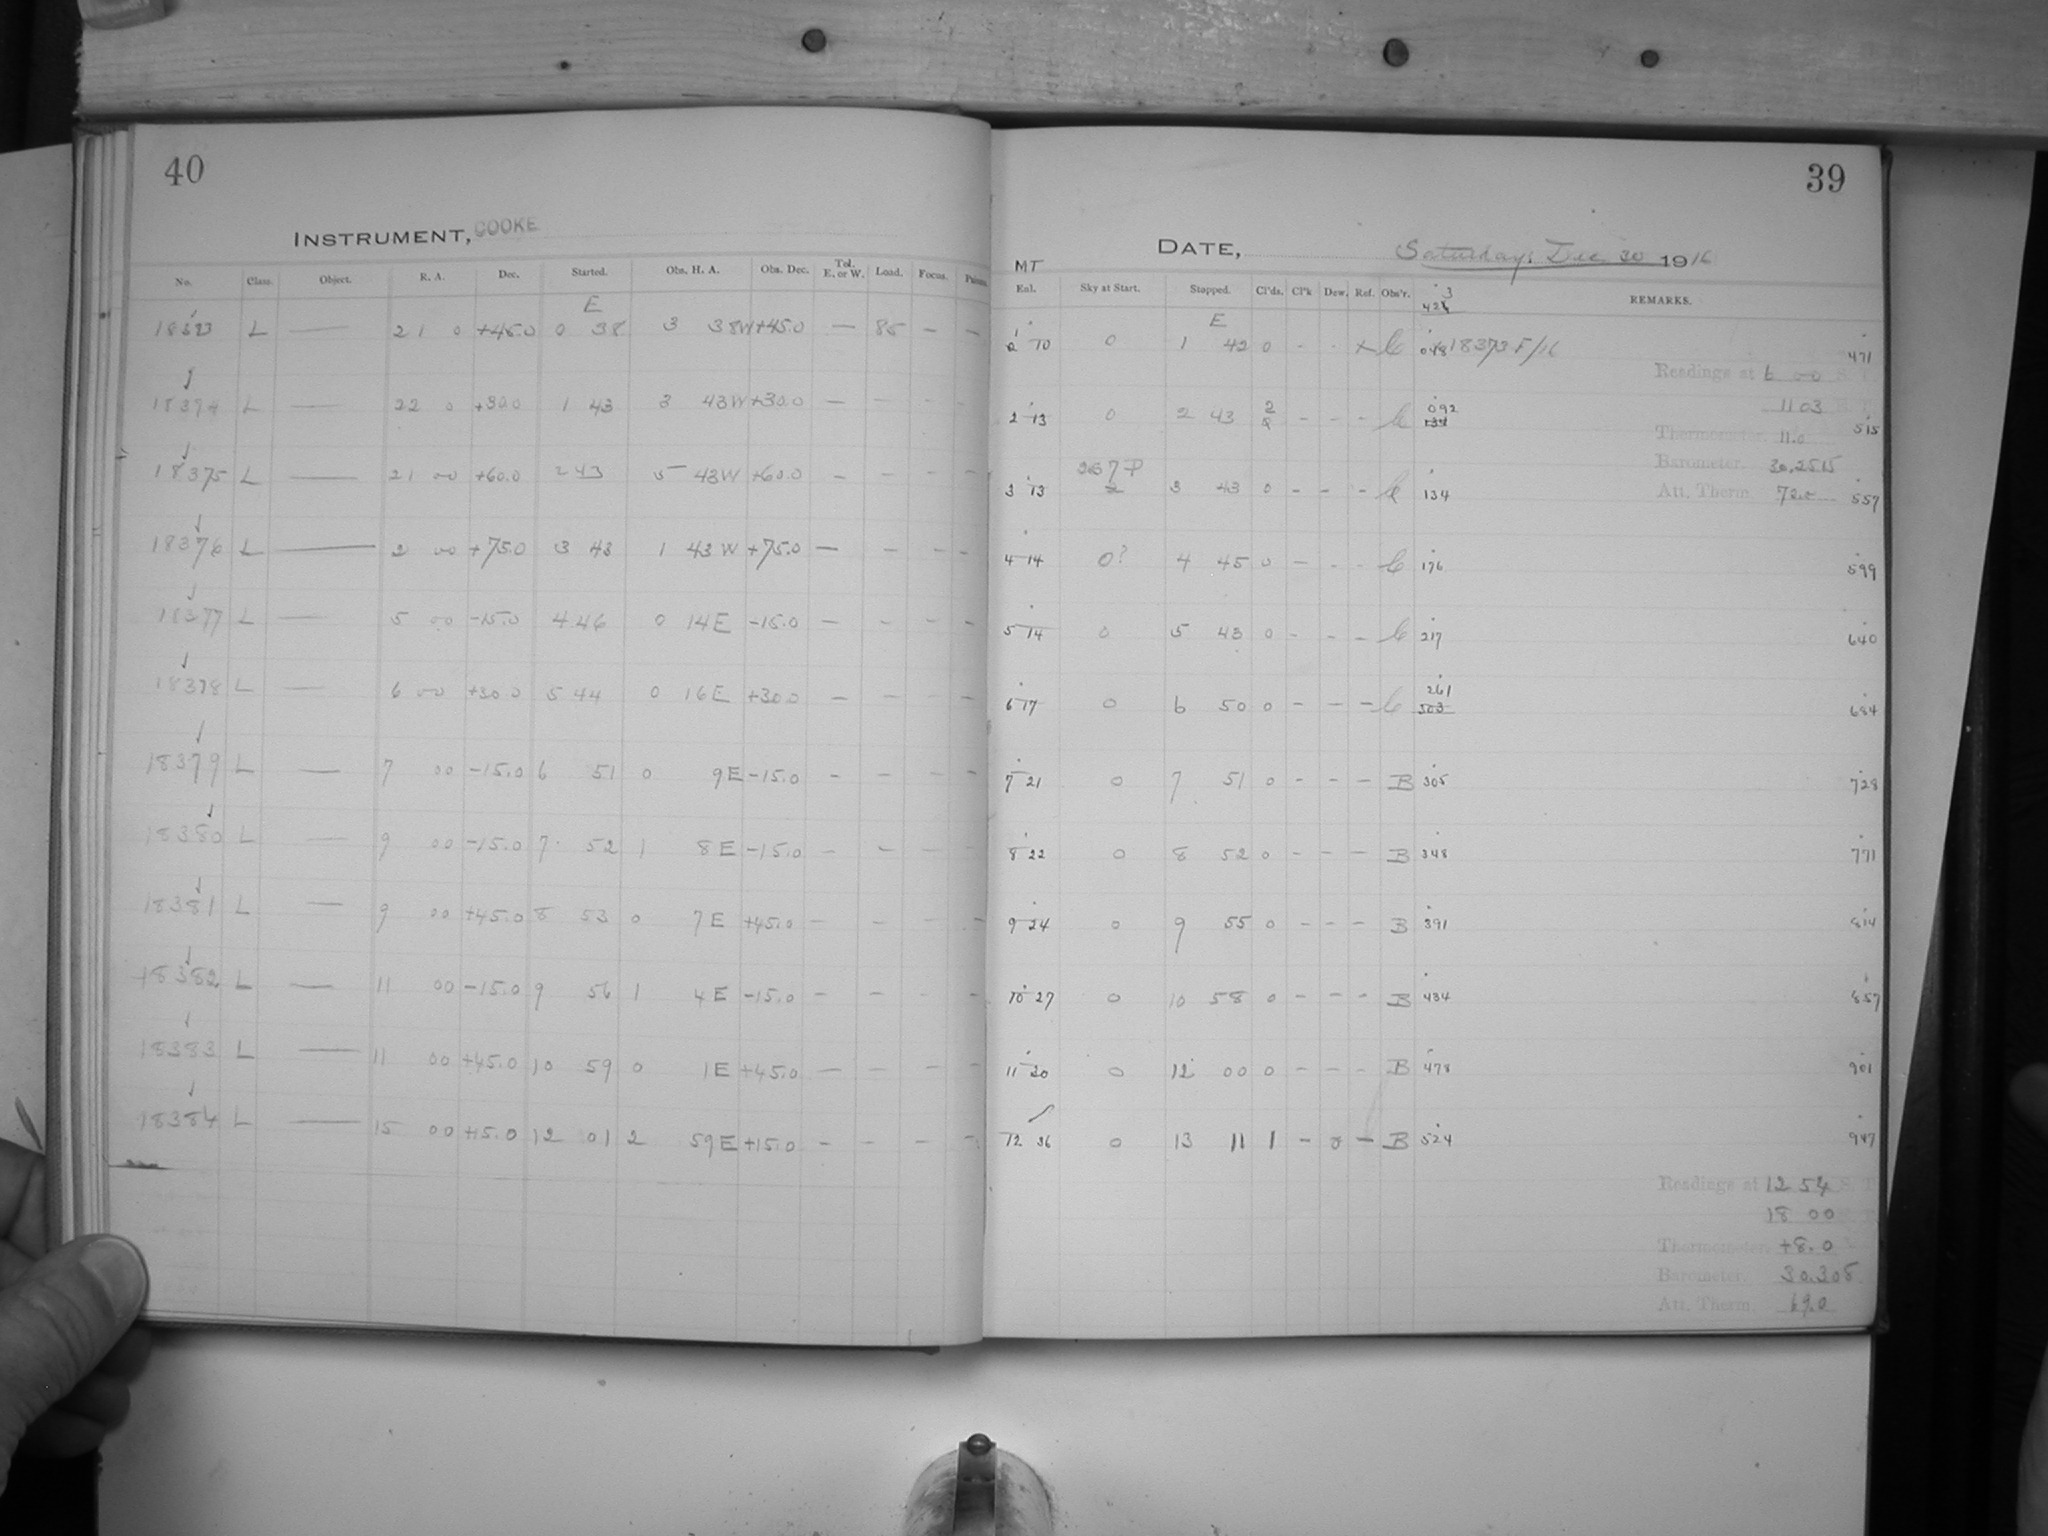 40
INSTRUMENT, COOKE
No. Class. Object. R. A. Dec. Started. Obs. H. A. Obs. Dec. Tel. E. or W. Load. Focus.
E
L — 21 0 +45.0 0 38 3 38W +45.0 — 85 – –
L — 22 0 +30.0 1 43 3 43W +30.0 — – – –
18375 L — 21 00 +60.0 2 43 5 43W +60.0 – – – –
18376 L — 2 00 +75.0 3 43 1 43W +75.0 — – – –
18377 L — 5 00 -15.0 4 46 0 14E -15.0 – – – –
18378 L — 6 00 +30.0 5 44 0 16E +30.0 – – – –
18379 L — 7 00 -15.0 6 51 0 9E -15.0 – – – –
18380 L — 9 00 -15.0 7 52 1 8E -15.0 – – – –
18381 L — 9 00 +45.0 8 53 0 7E +45.0 – – – –
18382 L — 11 00 -15.0 9 56 1 4E -15.0 – – – –
18383 L — 11 00 +45.0 10 59 0 1E +45.0 — – – –
18384 L — 15 00 +15.0 12 01 2 59E +15.0 – – – –
39
DATE, Saturday, Dec 30 1916
MT
Enl. Sky at Start. Stopped. Cl'ds. Cl'k Dew. Ref. Obs'r. REMARKS.
E
10 0 1 42 0 – - 048 18373 F/16 471
Readings at 6 00 S. T.
2 13 0 2 43 2 – – – 092 515
11 03
Thermometer 11.0
Barometer. 30.2515
3 13 3 43 0 – – – 134 557
Att. Therm. 72.0
4 14 0? 4 45 0 – - - 176 599
5 14 0 5 43 0 – – – 217 640
6 17 0 6 50 0 – – – 261 684
7 21 0 7 51 0 – – – B 305 728
8 22 0 8 52 0 – – – B 348 771
9 24 0 9 55 0 – – – B 391 814
10 27 0 10 58 0 – – – B 434 857
11 30 0 12 00 0 – – – B 478 901
12 36 0 13 11 1 – 0 – B 524 947
Readings at 12 54 S. T.
18 00
Thermometer. +8.0
Barometer. 30.308
Att. Therm. 69.0